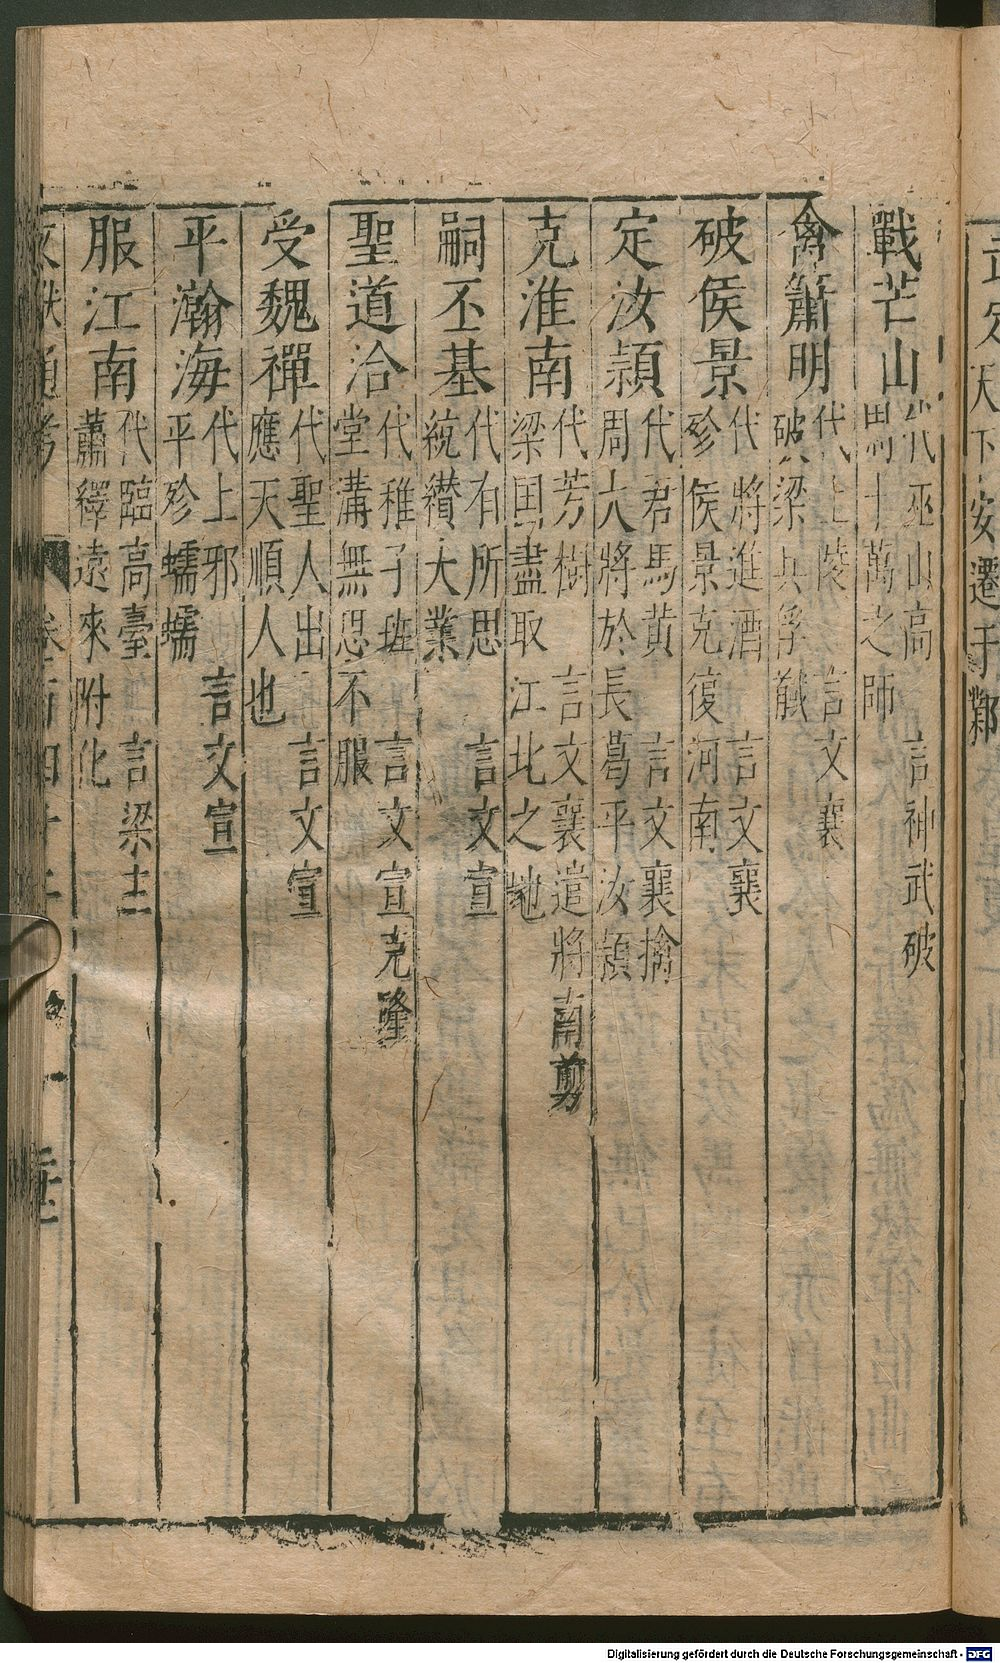 立定天下安遷于鄴
戰芒山 代巫山高 言神武破
四十萬之師
禽蕭明 代上陵 言文襄
破梁兵俘馘
破侯景 代將進酒 言文襄
殄侯景克復河南
定汝潁 代君馬黃 言文襄擒
周大將於長葛平汝潁
克淮南 代芳樹 言文襄遣將南剪
梁国盡取江北之地
嗣丕基 代有所思 言文宣
統纉大業
聖道洽 代稚子班 言文宣克隆
堂溝無思不服
受魏禪 代聖人出 言文宣
應天順人也
平瀚海 代上邪 言文宣
平殄蠕蠕
服江南 代臨高臺 言梁主
蕭繹遠來附化
文獻通考 卷一百四十二
Digitalisierung gefördert durch die Deutsche Forschungsgemeinschaft - DFG